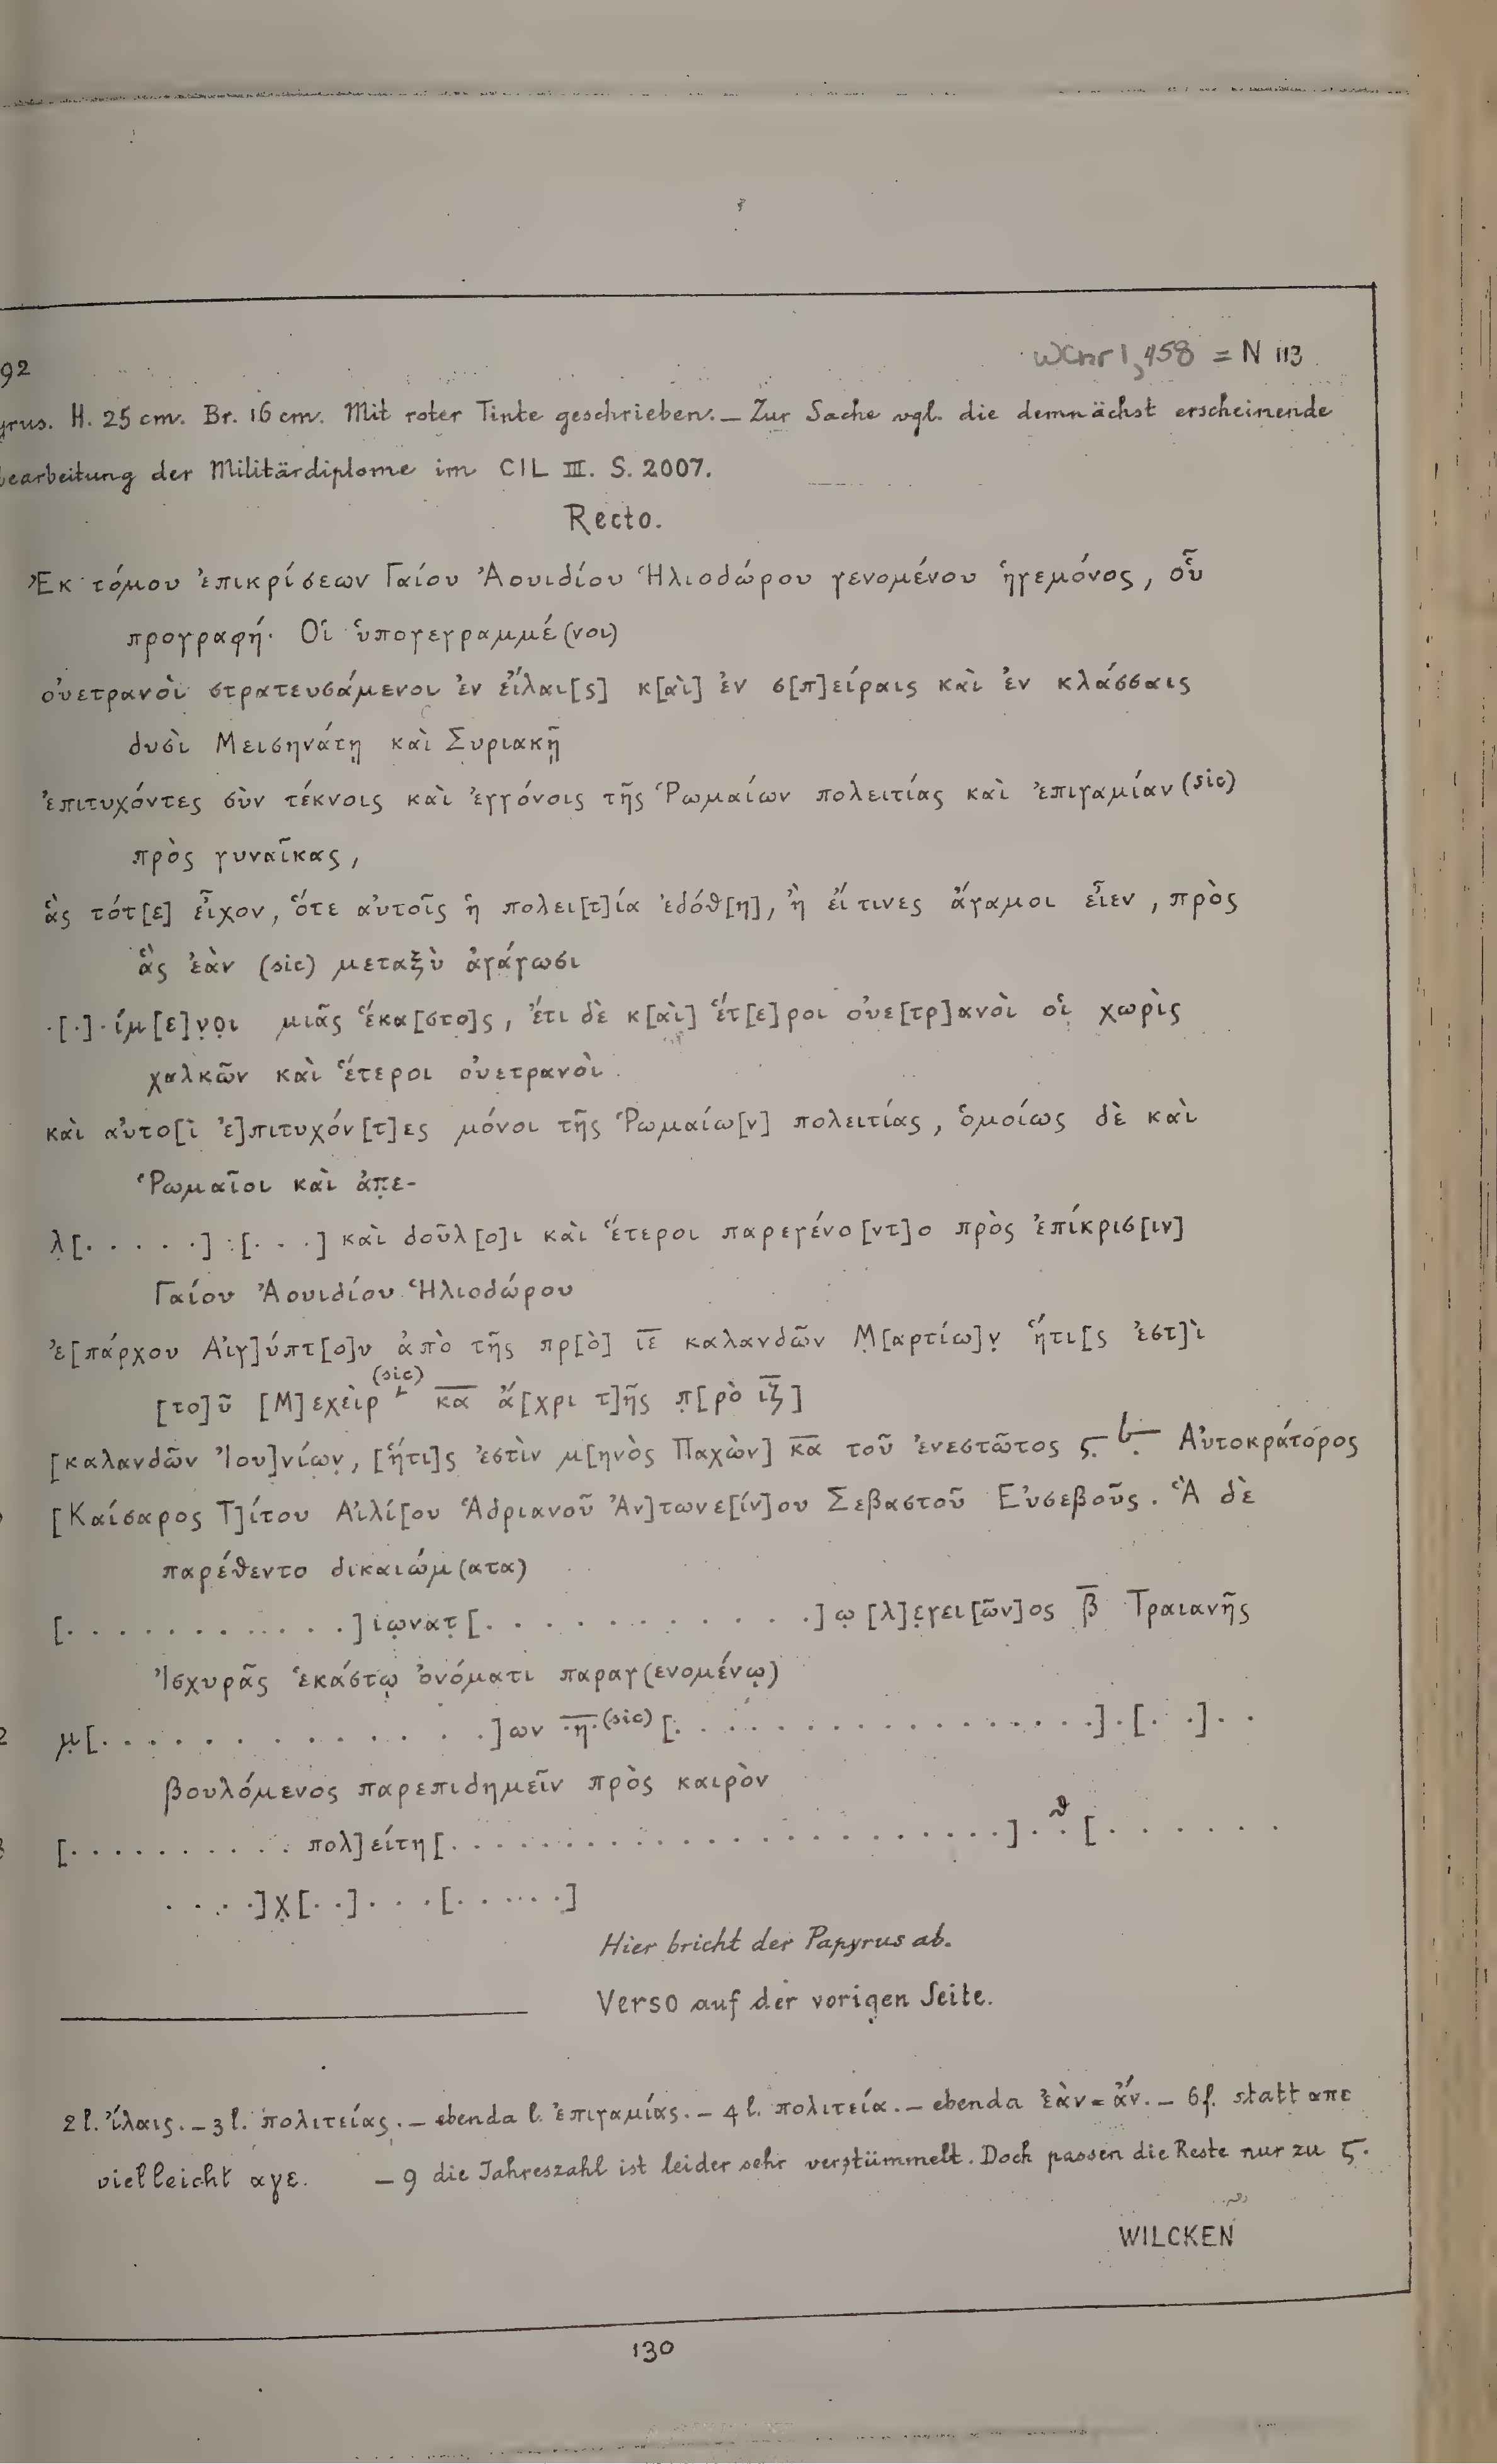 92
WChr I, 458 = N 113
yrus. H. 25 cm. Br. 16 cm. Mit roter Tinte geschrieben. — Zur Sache vgl. die demnächst erscheinende
bearbeitung der Militärdiplome im CIL III. S. 2007.
Recto.
Ἐκ τόμου ἐπικρίσεων Γαίου Ἀουιδίου Ἡλιοδώρου γενομένου ἡγεμόνος, οὗ
προγραφή· Οἱ ὑπογεγραμμέ(νοι)
οὐετρανοὶ στρατευσάμενοι ἐν εἴλαι[ς] κ[αὶ] ἐν σ[π]είραις καὶ ἐν κλάσσαις
δυσὶ Μεισηνάτῃ καὶ Συριακῇ
ἐπιτυχόντες σὺν τέκνοις καὶ ἐγγόνοις τῆς Ῥωμαίων πολειτίας καὶ ἐπιγαμίαν (sic)
πρὸς γυναῖκας,
ἃς τότ[ε] εἶχον, ὅτε αὐτοῖς ἡ πολει[τ]ία ἐδόθ[η], ἢ εἴ τινες ἄγαμοι εἶεν, πρὸς
ἃς ἐὰν (sic) μεταξὺ ἀγάγωσι
.[.].ίμ[ε]ν̣ο̣ι μιᾶς ἕκα[στο]ς, ἔτι δὲ κ[αὶ] ἕτ[ε]ροι οὐε[τρ]ανοὶ οἱ χωρὶς
χαλκῶν καὶ ἕτεροι οὐετρανοὶ
καὶ αὐτο[ὶ ἐ]πιτυχόν[τ]ες μόνοι τῆς Ῥωμαίω[ν] πολειτίας, ὁμοίως δὲ καὶ
Ῥωμαῖοι καὶ ἀπ̣ε-
λ̣[. . . . .] :[. . .] καὶ δοῦλ[ο]ι καὶ ἕτεροι παρεγένο[ντ]ο πρὸς ἐπίκρισ[ιν]
Γαίου Ἀουιδίου Ἡλιοδώρου
ἐ[πάρχου Αἰγ]ύπτ[ο]υ ἀπὸ τῆς πρ[ὸ] ι̅ε̅ καλανδῶν Μ̣[αρτίω]ν̣ ἥτι[ς ἐστ]ὶ
[το]ῦ [Μ]εχεὶρ (sic) κ̅α̅ ἄ[χρι τ]ῆς π̣[ρὸ ι̅ζ̅]
[καλανδῶν Ἰου]νίων̣, [ἥτι]ς ἐστὶν μ[ηνὸς Παχὼν] κ̅α̅ τοῦ ἐνεστῶτος ϛ̣ Αὐτοκράτορος
[Καίσαρος Τ]ίτου Αἰλί[ου Ἁδριανοῦ Ἀν]τωνε[ίν]ου Σεβαστοῦ Εὐσεβοῦς. Ἃ δὲ
παρέθεντο δικαιώμ(ατα)
[. . . . . . . . . . . .]ιω̣νατ̣[. . . . . . . . . . . .]ω̣ [λ]ε̣γει[ῶν]ος β̅ Τραιανῆς
Ἰσχυρᾶς ἑκάστῳ ὀνόματι παραγ(ενομένῳ)
2 μ̣[. . . . . . . . . . . . .]ων .η̅.(sic) [. . . . . . . . . . . . . . . .].[. .]. .
βουλόμενος παρεπιδημεῖν πρὸς καιρὸν
3 [. . . . . . . . . . πολ]είτη[. . . . . . . . . . . . . . . . . . . . . .]. .ϑ[. . . . . .
. . . .]χ̣[. .]. . .[. . . . . .]
Hier bricht der Papyrus ab.
Verso auf der vorigen Seite.
2 l. ἴλαις. — 3 l. πολιτείας. — ebenda l. ἐπιγαμίας. — 4 l. πολιτεία. — ebenda ἐὰν = ἄν. — 6 f. statt απε
vielleicht αγε. — 9 die Jahreszahl ist leider sehr verstümmelt. Doch passen die Reste nur zu ϛ.
WILCKEN
130